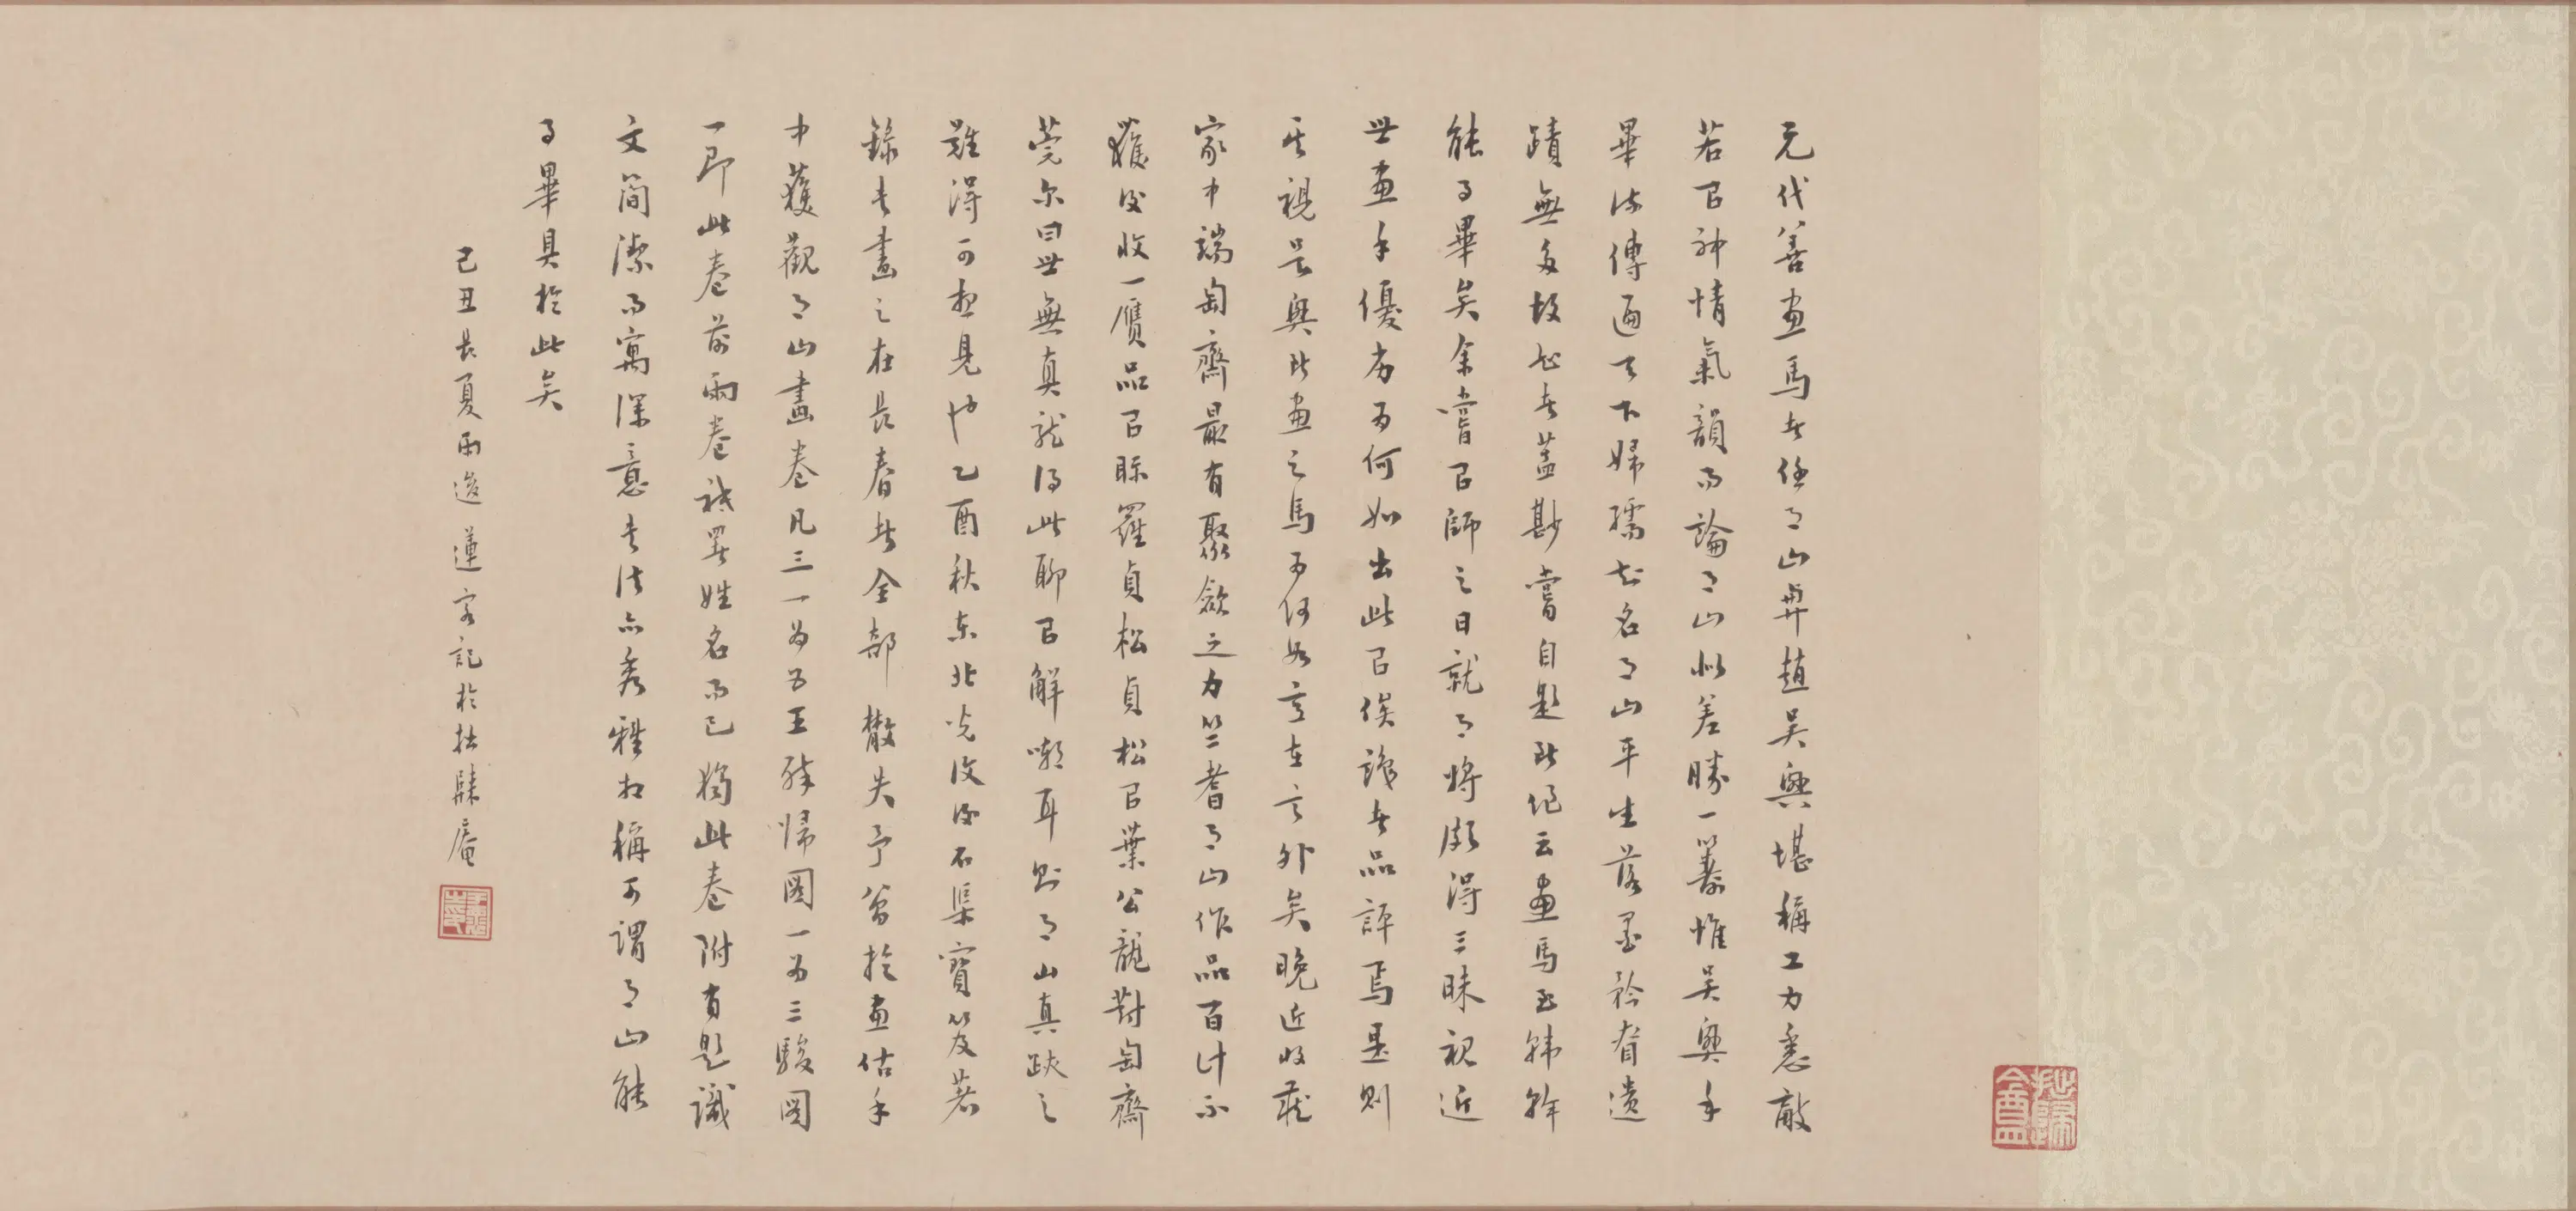 元代善画馬者任月山與趙吳興堪稱工力悉敵
若以神情氣韻而論月山似差勝一籌惟吳興手
畢流傳遍天下婦孺知名月山平生落墨矜眘遺
蹟無多故知者蓋尠嘗自題此卷云畫馬至韓幹
能事畢矣余嘗以師之日就月將頗得三昧視近
世畫手優劣為何如出此以俟識者品評焉是則
其視吳興所畫之馬為何如意在言外矣晚近收藏
家中端匋齋最有聚斂之力竺耆月山作品百計不
獲後收一贋品以眎羅貞松貞松以葉公龍對匋齋
莞尔曰世無真龍得此聊以解嘲耳則月山真跡之
難得可想見也乙酉秋東北光復後石渠寶笈著
錄書畫之在長春者全部散失予曾於畫估手
中獲觀月山畫卷凡三一為五王醉歸圖一為三駿圖
一即此卷前兩卷祗署姓名而已獨此卷附有題識
文簡潔而寓深意書法亦秀雅相稱可謂月山能
事畢具於此矣
己丑長夏雨後蓮客記於拙隸庵